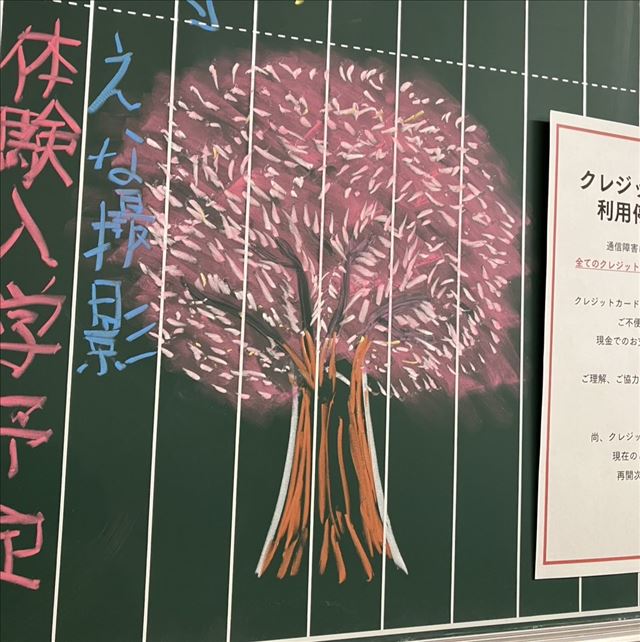 え な 撮影
体験入学予定
クレジッ
利用停
通信障害
全てのクレジット
クレジットカード
ご不便
現金でのお支
ご理解、ご協力
尚、クレジッ
現在の
再開次